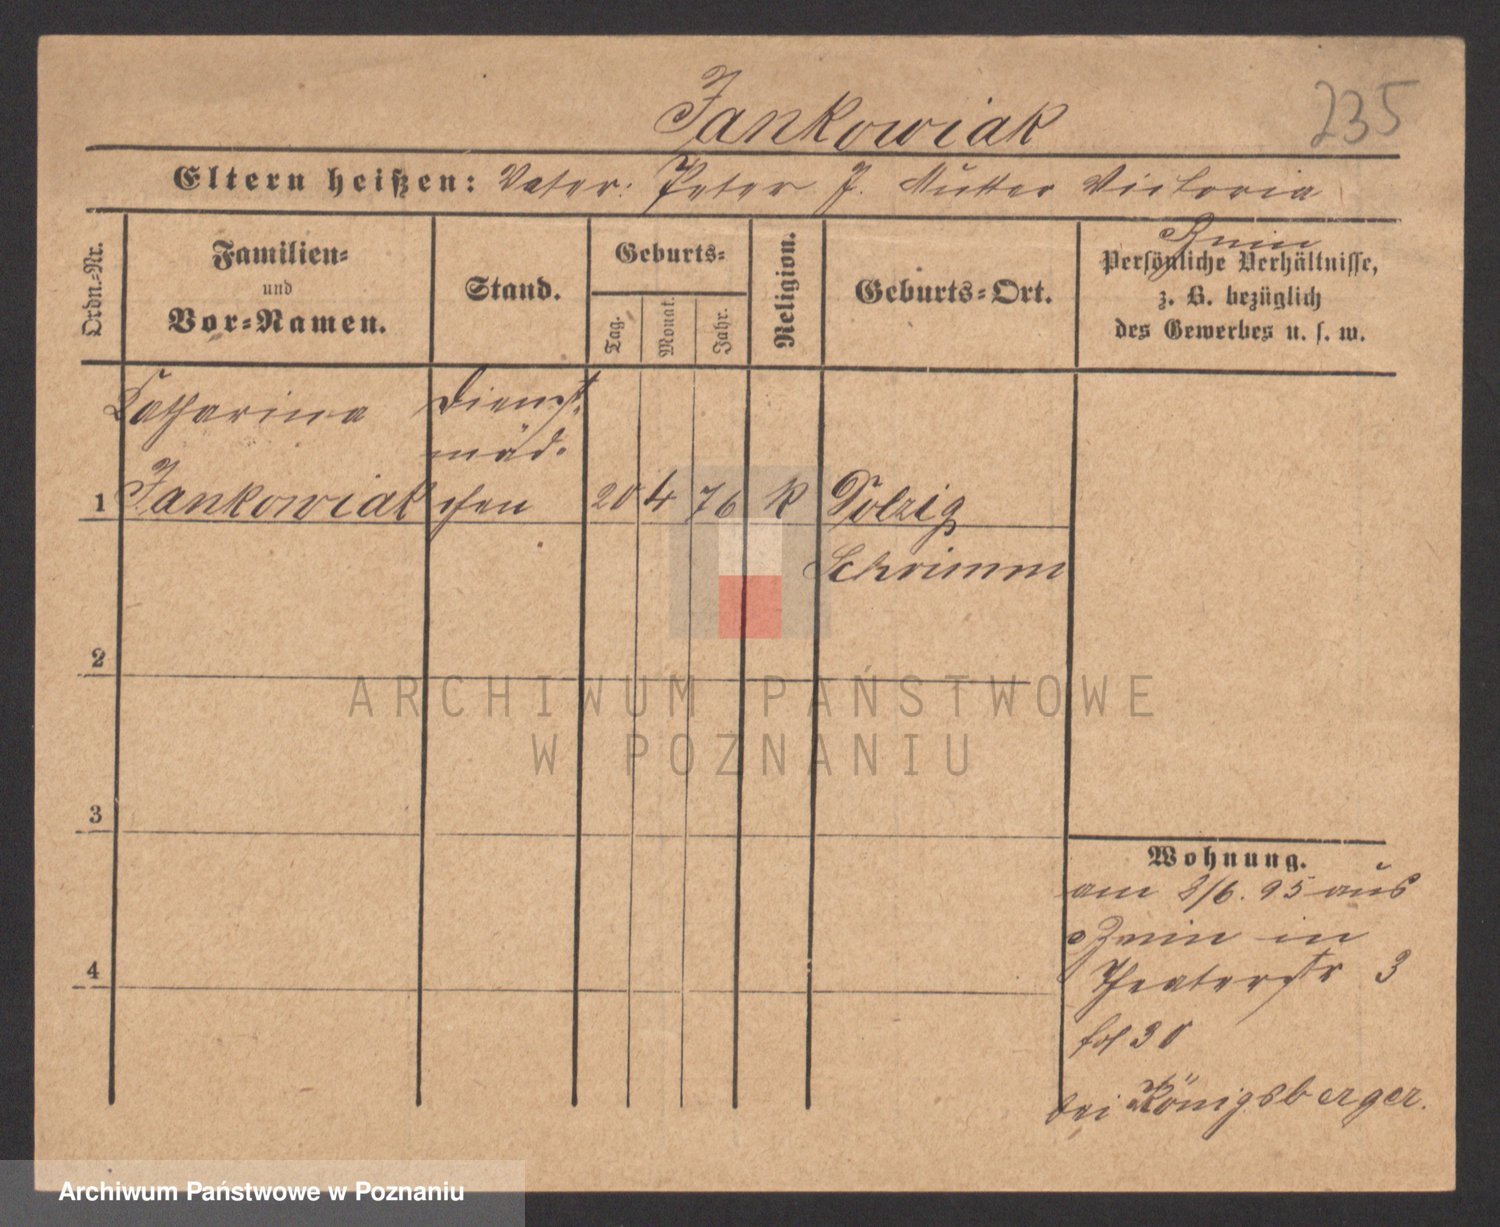 Jankowiak
235
Eltern heißen: Vater: Peter J. Mutter Victoria
Znin
Ordn.-Nr.
Familien-
und
Vor-Namen.
Stand.
Geburts-
Tag.
Monat.
Jahr.
Religion.
Geburts-Ort.
Persönliche Verhältnisse,
z. B. bezüglich
des Gewerbes u. s. w.
Catharina Dienst-
mäd-
1 Jankowiak chen 20 4 76 K Dolzig
Schrimm
2
ARCHIWUM PAŃSTWOWE
W POZNANIU
3
4
Wohnung.
am 8/6. 95 aus
Znin in
Theaterstr 3
fol 30
bei Königsberger.
Archiwum Państwowe w Poznaniu